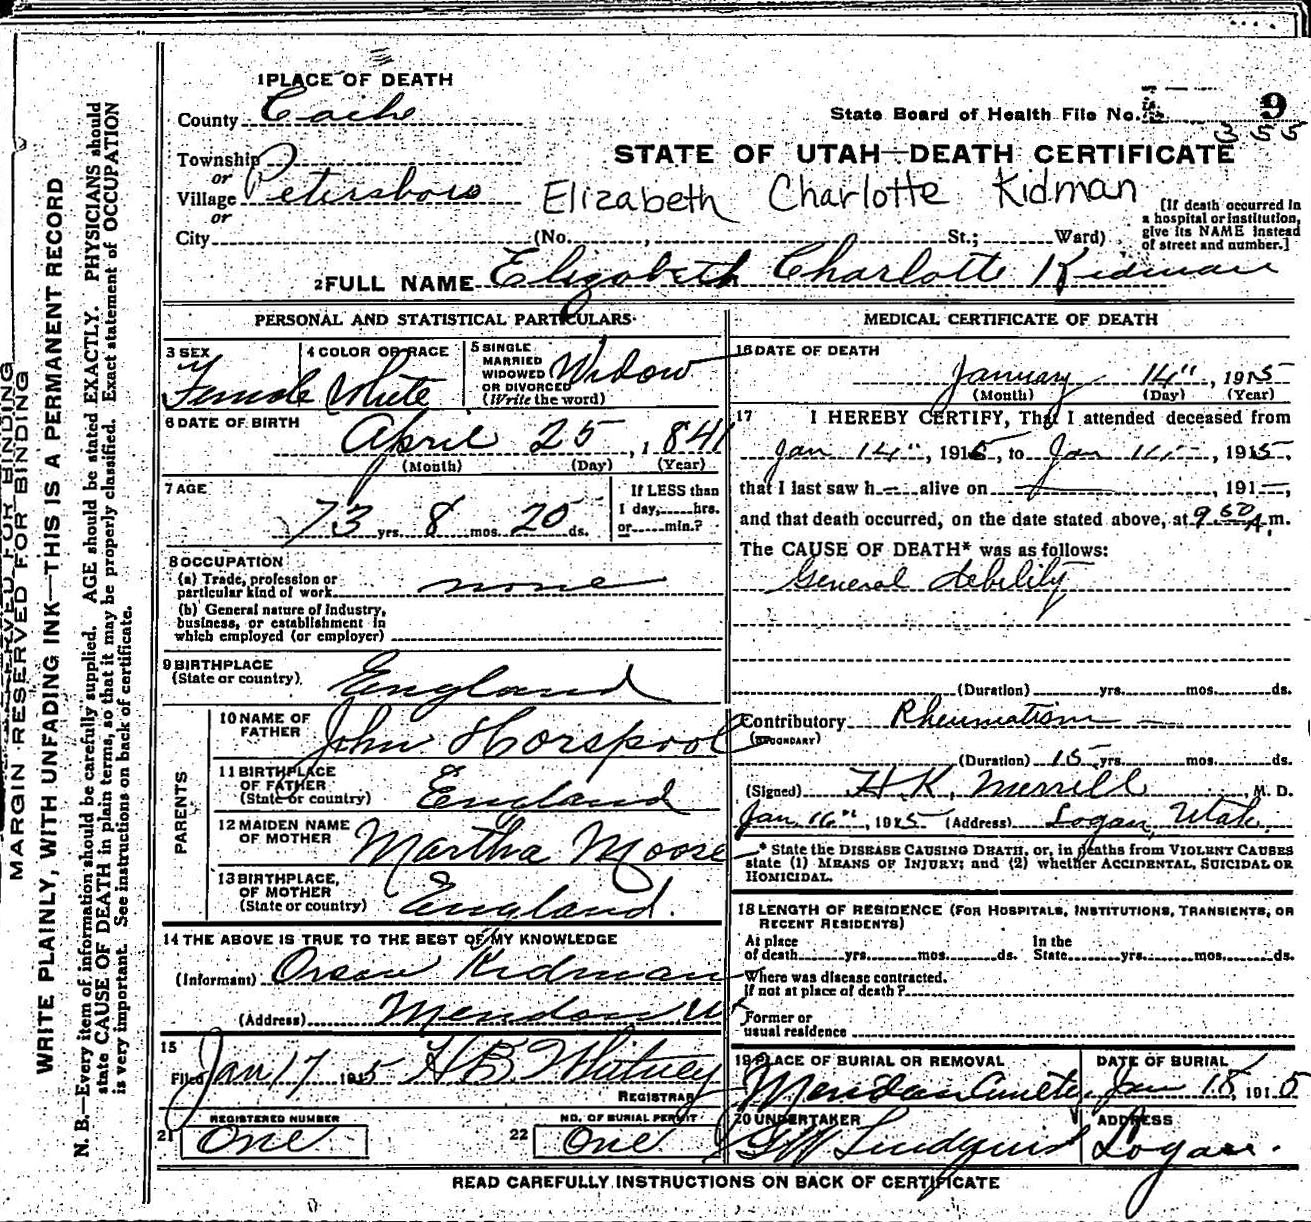 1 PLACE OF DEATH
County Cache
State Board of Health File No. 9
355
Township
or
Village Petersboro
or
City (No. , St.; Ward)
STATE OF UTAH—DEATH CERTIFICATE
Elizabeth Charlotte Kidman
[If death occurred in
a hospital or institution,
give its NAME instead
of street and number.]
2 FULL NAME Elizabeth Charlotte Kidman
PERSONAL AND STATISTICAL PARTICULARS
3 SEX Female
4 COLOR OR RACE White
5 SINGLE
MARRIED
WIDOWED
OR DIVORCED
(Write the word) Widow
6 DATE OF BIRTH
April 25, 1841
(Month) (Day) (Year)
7 AGE
73 yrs. 8 mos. 20 ds.
If LESS than
1 day, hrs.
or min.?
8 OCCUPATION
(a) Trade, profession or
particular kind of work none
(b) General nature of industry,
business, or establishment in
which employed (or employer)
9 BIRTHPLACE
(State or country) England
PARENTS
10 NAME OF
FATHER John Horspool
11 BIRTHPLACE
OF FATHER
(State or country) England
12 MAIDEN NAME
OF MOTHER Martha Moose
13 BIRTHPLACE,
OF MOTHER
(State or country) England.
14 THE ABOVE IS TRUE TO THE BEST OF MY KNOWLEDGE
(Informant) Orson Kidman
(Address) Mendon Ut
15
Filed Jan 17 1915 H B. Whitney
REGISTRAR
REGISTERED NUMBER
21 One
NO. OF BURIAL PERMIT
22 One
MEDICAL CERTIFICATE OF DEATH
16 DATE OF DEATH
January 14", 1915
(Month) (Day) (Year)
17 I HEREBY CERTIFY, That I attended deceased from
Jan 14", 1915, to Jan 14, 1915,
that I last saw h— alive on —, 191—,
and that death occurred, on the date stated above, at 9.50 A.m.
The CAUSE OF DEATH* was as follows:
General debility
(Duration) yrs. mos. ds.
Contributory Rheumatism —
(SECONDARY)
(Duration) 15 yrs. mos. ds.
(Signed) H. K. Merrill, M. D.
Jan 16", 1915 (Address) Logan, Utah.
* State the DISEASE CAUSING DEATH, or, in deaths from VIOLENT CAUSES
state (1) MEANS OF INJURY; and (2) whether ACCIDENTAL, SUICIDAL OR
HOMICIDAL.
18 LENGTH OF RESIDENCE (FOR HOSPITALS, INSTITUTIONS, TRANSIENTS, OR
RECENT RESIDENTS)
At place
of death yrs. mos. ds.
In the
State yrs. mos. ds.
Where was disease contracted.
If not at place of death?
Former or
usual residence
19 PLACE OF BURIAL OR REMOVAL
Mendon
DATE OF BURIAL
Jan 18, 1915
20 UNDERTAKER
G W Lindquist
ADDRESS
Logan.
READ CAREFULLY INSTRUCTIONS ON BACK OF CERTIFICATE
MARGIN RESERVED FOR BINDING
WRITE PLAINLY, WITH UNFADING INK—THIS IS A PERMANENT RECORD
N. B.—Every item of information should be carefully supplied. AGE should be stated EXACTLY. PHYSICIANS should
state CAUSE OF DEATH in plain terms, so that it may be properly classified. Exact statement of OCCUPATION
is very important. See instructions on back of certificate.